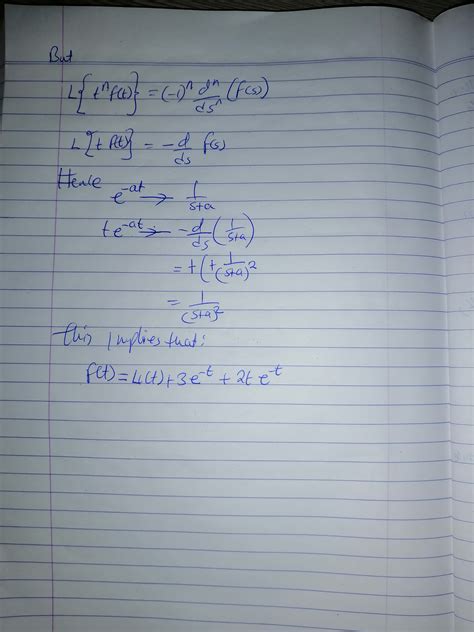 But
L{t^n f(t)} = (-1)^n d^n/ds^n (f(s))
L{t f(t)} = -d/ds f(s)
Hence
e^-at → 1/s+a
te^-at → -d/ds (1/s+a)
= +(+1/(s+a)^2
= 1/(s+a)^2
this implies that:
f(t) = 4(t) + 3e^-t + 2t e^-t